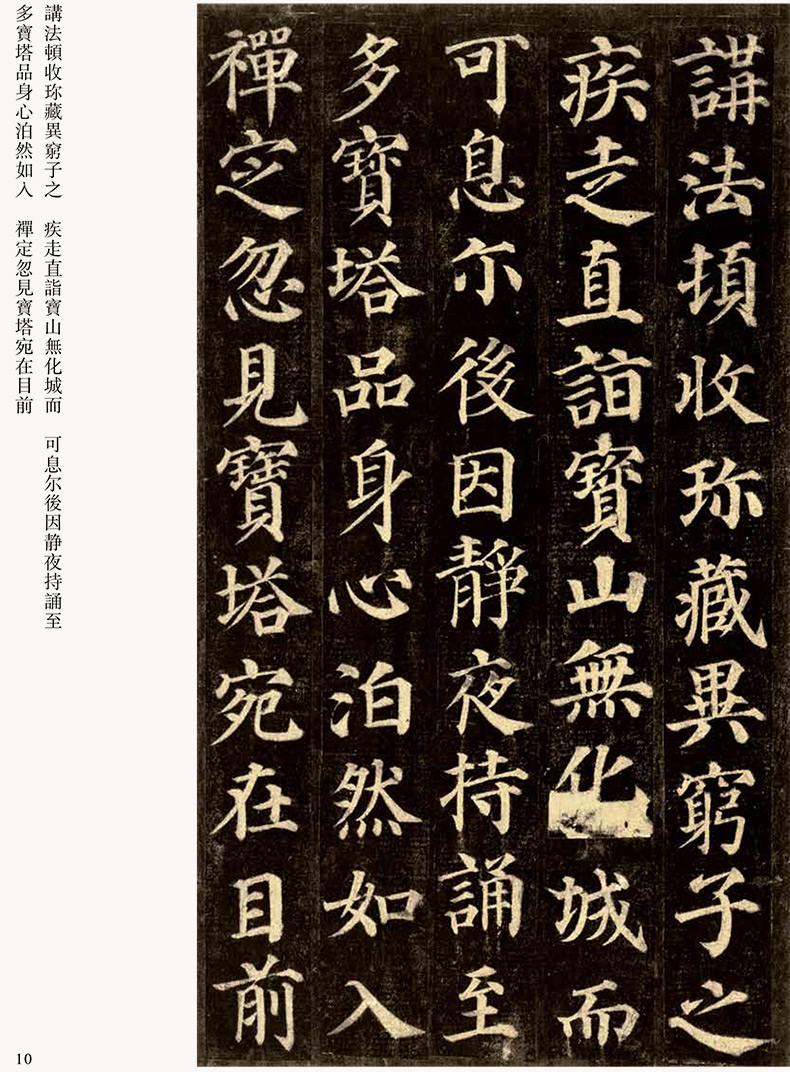 講法頓收珎藏異窮子之
疾走直詣寶山無化城而
可息尒後因靜夜持誦至
多寶塔品身心泊然如入
禪定忽見寶塔宛在目前
講法頓收珎藏異窮子之　疾走直詣寶山無化城而　可息尔後因静夜持誦至
多寶塔品身心泊然如入　禪定忽見寶塔宛在目前
10